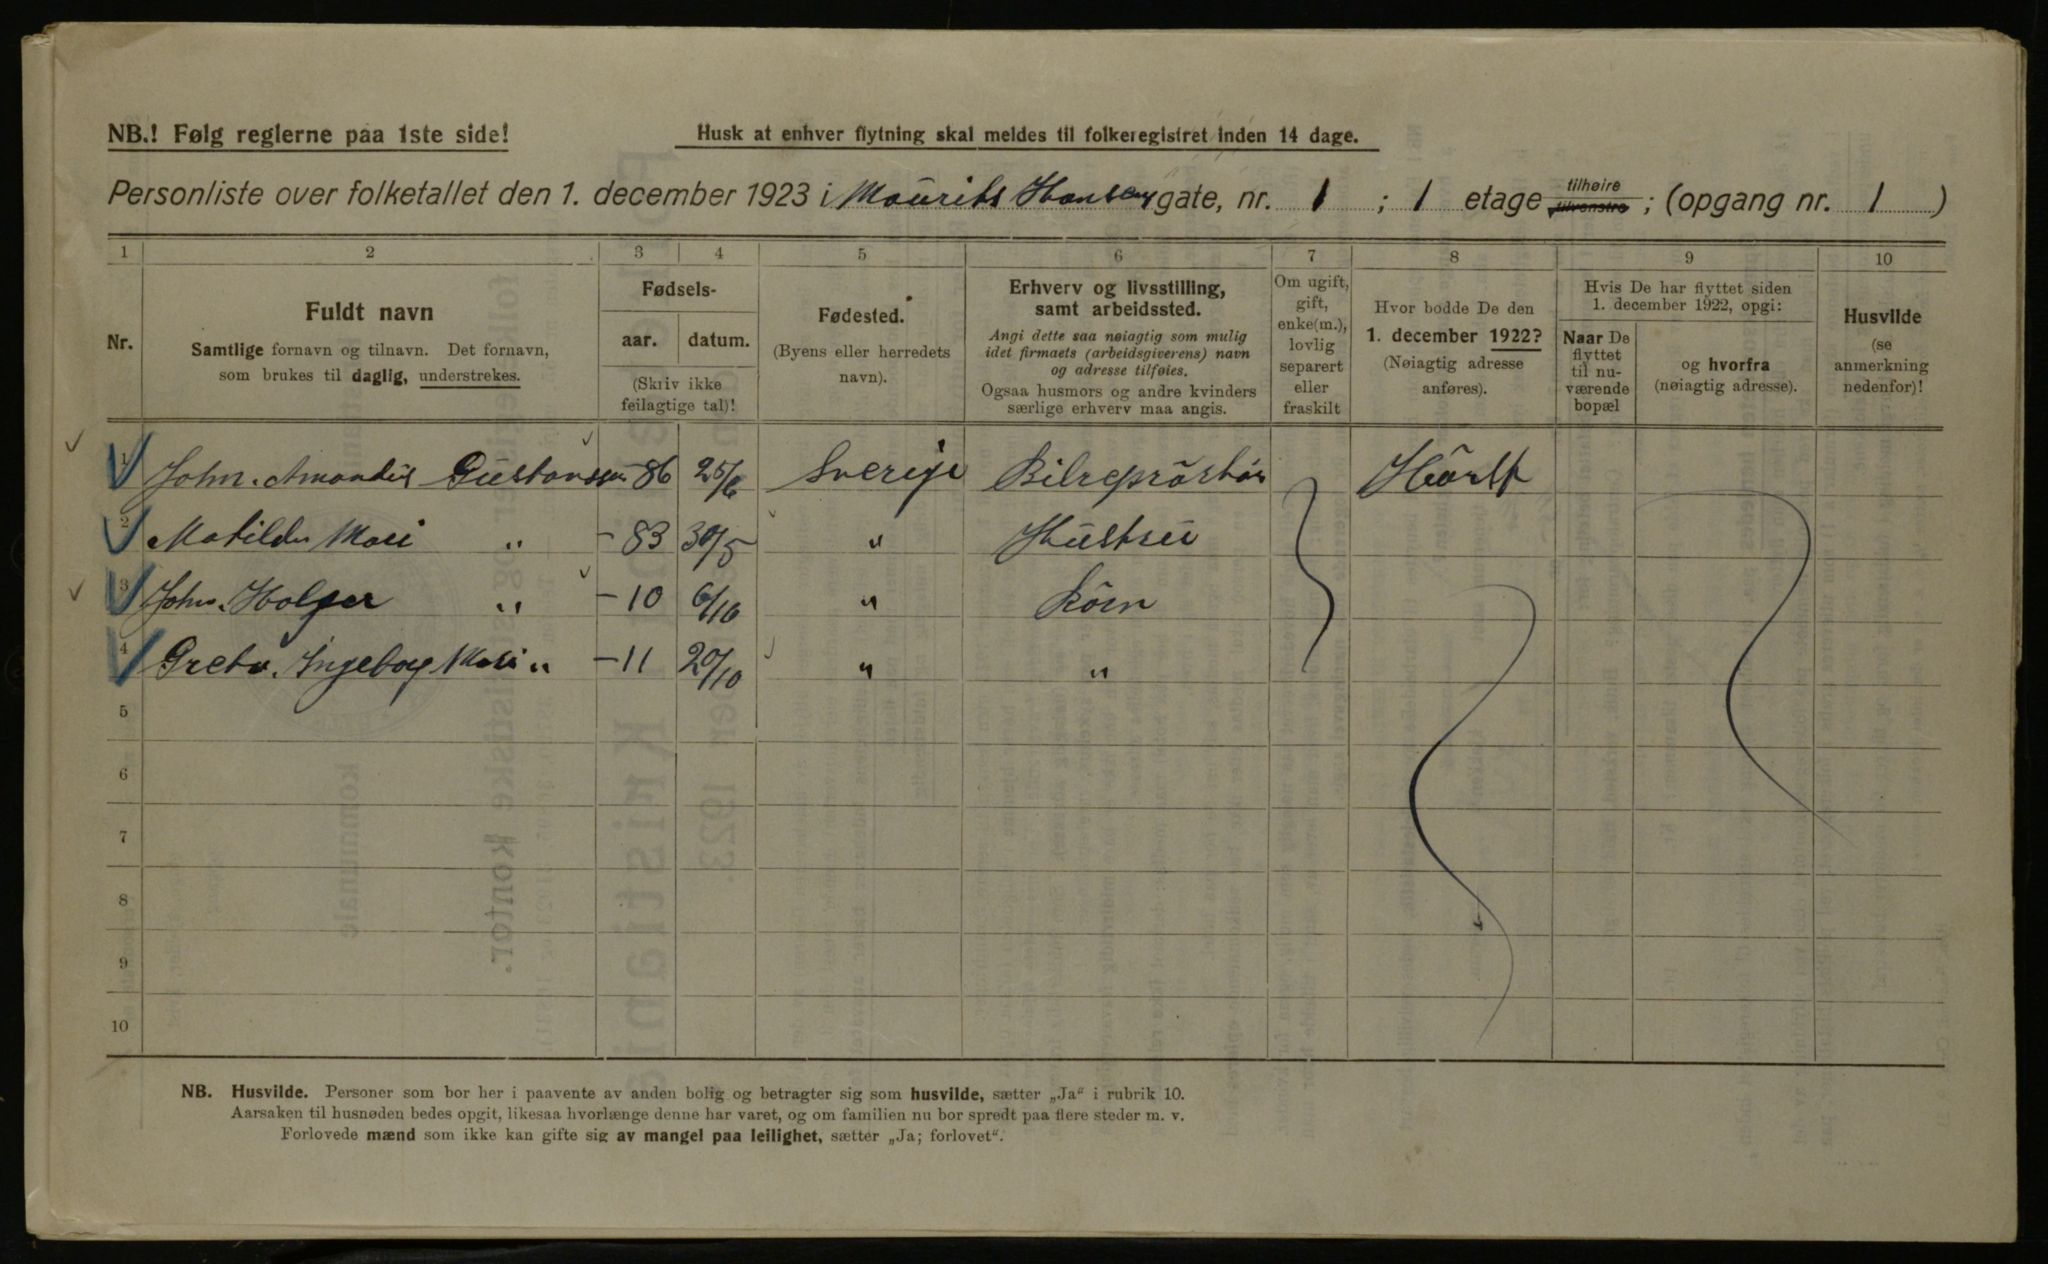 NB.! Følg reglerne paa 1ste side!
Husk at enhver flytning skal meldes til folkeregistret inden 14 dage.
Personliste over folketallet den 1. december 1923 i Maurits Hansens gate, nr. 1 ; 1 etage tilhøire tilvenstre ; (opgang nr. 1 )
1 2 3 4 5 6 7 8 9 10
Nr.
Fuldt navn
Samtlige fornavn og tilnavn. Det fornavn,
som brukes til daglig, understrekes.
Fødsels-
aar. datum.
(Skriv ikke
feilagtige tal)!
Fødested.
(Byens eller herredets
navn).
Erhverv og livsstilling,
samt arbeidssted.
Angi dette saa nøiagtig som mulig
idet firmaets (arbeidsgiverens) navn
og adresse tilføies.
Ogsaa husmors og andre kvinders
særlige erhverv maa angis.
Om ugift,
gift,
enke(m.),
lovlig
separert
eller
fraskilt
Hvor bodde De den
1. december 1922?
(Nøiagtig adresse
anføres).
Hvis De har flyttet siden
1. december 1922, opgi:
Naar De
flyttet
til nu-
værende
bopæl
og hvorfra
(nøiagtig adresse).
Husvilde
(se
anmerkning
nedenfor)!
1 John. Amandus Gustavssen -86 25/6 Sverige
2 Matilde Mari " -83 30/5 " Hustru
3 John. Holger " -10 6/10 "
4 Greta. Ingeborg Mari " -11 20/10 " "
5
6
7
8
9
10
NB. Husvilde. Personer som bor her i paavente av anden bolig og betragter sig som husvilde, sætter „Ja“ i rubrik 10.
Aarsaken til husnøden bedes opgit, likesaa hvorlænge denne har varet, og om familien nu bor spredt paa flere steder m. v.
Forlovede mænd som ikke kan gifte sig av mangel paa leilighet, sætter „Ja; forlovet“.